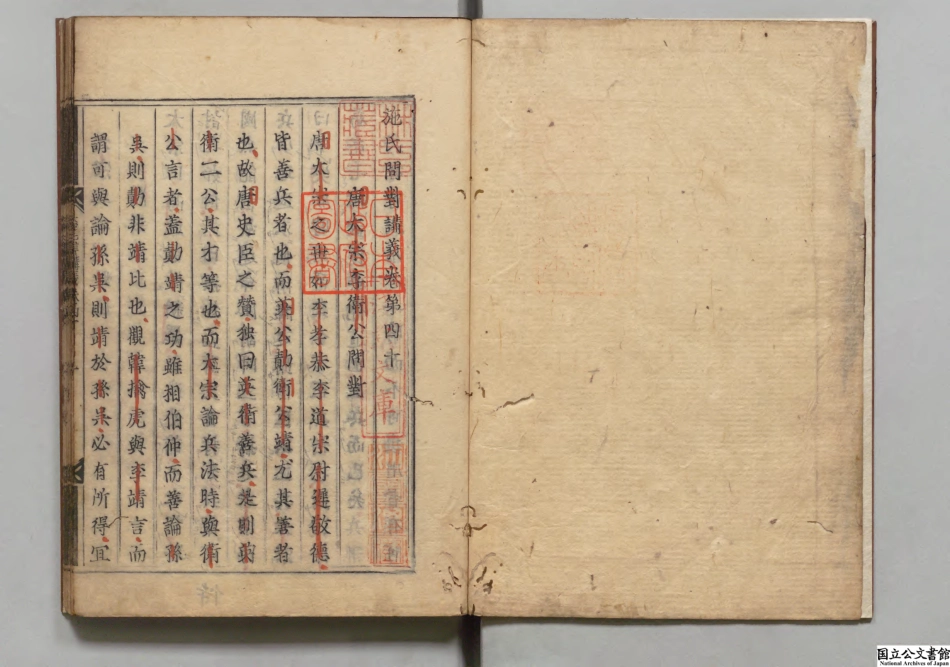 施氏問對講義卷第四十
唐太宗李衛公問對
唐太宗之世如李孝恭李道宗尉遲敬德
皆善兵者也而英公勣衛公靖尤其善者
也故唐史臣之贊独曰英衛善兵是則英
衛二公其才等也而太宗論兵法時與衛
公言者蓋勣靖之功雖相伯仲而善論孫
吳則勣非靖比也觀韓擒虎與李靖言而
謂可與論孫吳則靖於孫吳必有所得宜
國立公文書館
National Archives of Japan